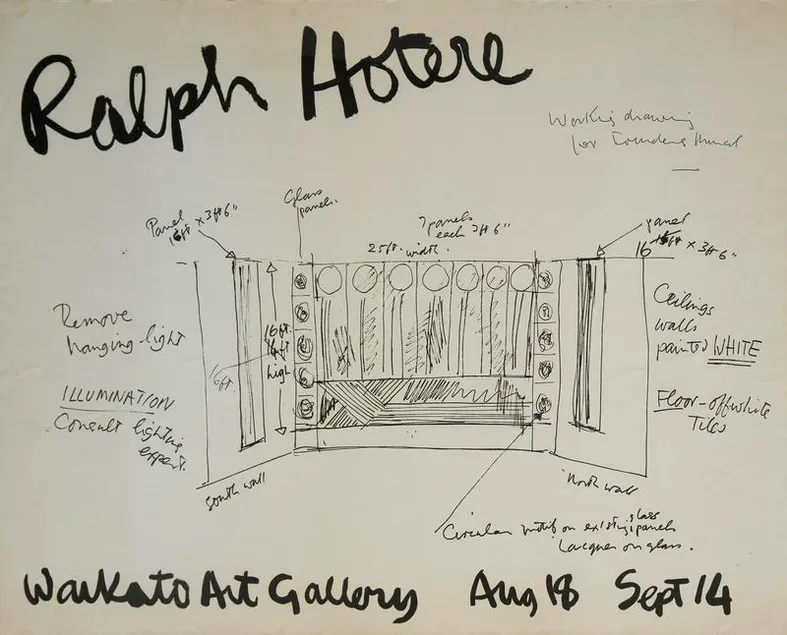 Ralph Hotere
Working drawing
for Founders Mural
Glass
panels.
Panel
16ft x 3ft 6"
7 panels
each 3ft 6"
25ft. width.
panel
16 15ft x 3ft 6"
Remove
hanging-light
16ft.
14ft
high
16ft
ILLUMINATION
Consult lighting
expert.
Ceilings
walls
painted WHITE
Floor-offwhite
Tiles
South wall
North wall
Circular motif on existing glass panels
Lacquer on glass.
Waikato Art Gallery Aug 18 Sept 14